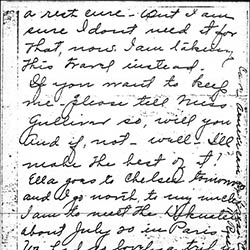 a rest cure. But I am
sure I dont need it for
that, now I am taking
this travel instead.
If you want to keep
me please tell Miss
Gulliver so, will you
And if not - well I'll
make the best of it!
Ella goes to Chelsea tomorrow
and I go north, to my uncle
I am to meet the
about July 20 in Paris